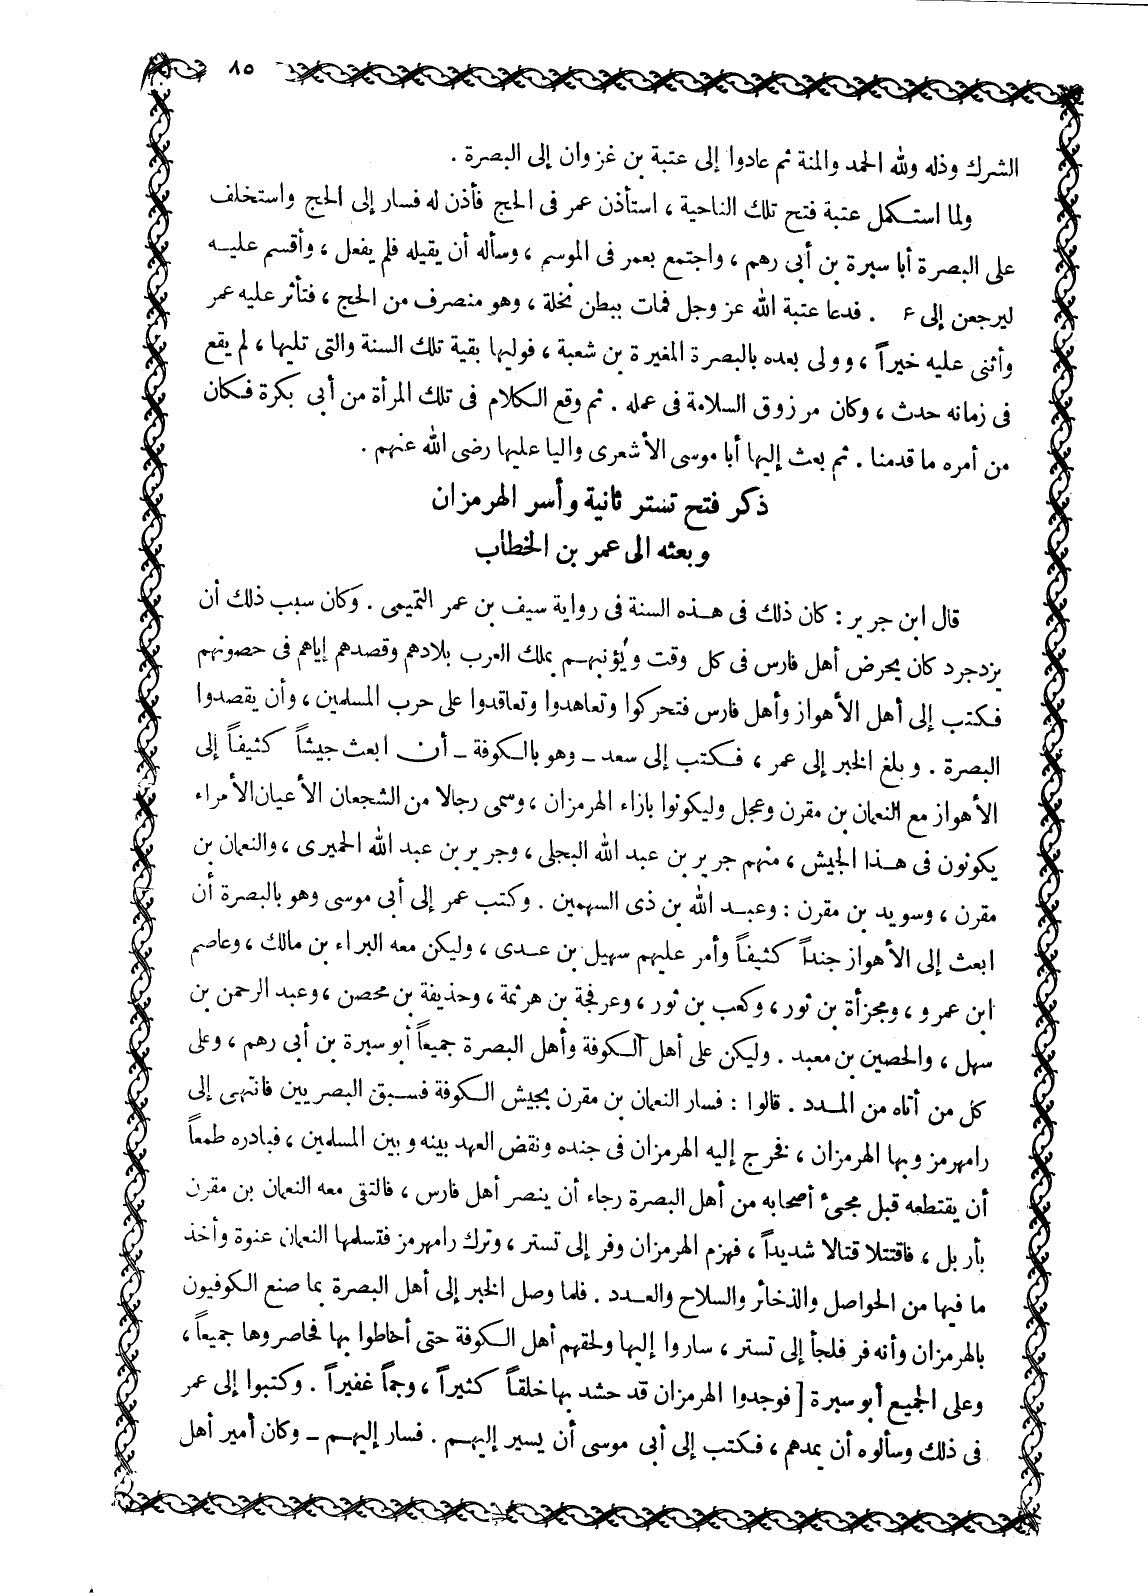 ٨٥
الشرك وذله ولله الحمد والمنة ثم عادوا إلى عتبة بن غزوان إلى البصرة .
ولما استكمل عتبة فتح تلك الناحية ، استأذن عمر فى الحج فأذن له فسار إلى الحج واستخلف
على البصرة أبا سبرة بن أبى رهم ، واجتمع بعمر فى الموسم ، وسأله أن يقيله فلم يفعل ، وأقسم عليه
ليرجعن إلى ع . فدعا عتبة الله عز وجل فمات ببطن نخلة ، وهو منصرف من الحج ، فتأثر عليه عمر
وأثنى عليه خيراً ، وولى بعده بالبصرة المغيرة بن شعبة ، فوليها بقية تلك السنة والتى تليها ، لم يقع
فى زمانه حدث ، وكان مرزوق السلامة فى عمله . ثم وقع الكلام فى تلك المرأة من أبى بكرة فكان
من أمره ما قدمنا . ثم بعث إليها أبا موسى الأشعرى واليا عليها رضى الله عنهم .
ذكر فتح تستر ثانية وأسر الهرمزان
وبعثه الى عمر بن الخطاب
قال ابن جرير : كان ذلك فى هذه السنة فى رواية سيف بن عمر التميمى . وكان سبب ذلك أن
يزدجرد كان يحرض أهل فارس فى كل وقت ويُؤنبهم بملك العرب بلادهم وقصدهم إياهم فى حصونهم
فكتب إلى أهل الأهواز وأهل فارس فتحركوا وتعاهدوا وتعاقدوا على حرب المسلمين ، وأن يقصدوا
البصرة . وبلغ الخبر إلى عمر ، فكتب إلى سعد ـ وهو بالكوفة ـ أن ابعث جيشاً كثيفاً إلى
الأهواز مع النعمان بن مقرن وعجل وليكونوا بازاء الهرمزان ، وسمى رجالا من الشجعان الأعيان الأمراء
يكونون فى هذا الجيش ، منهم جرير بن عبد الله البجلى ، وجرير بن عبد الله الحميرى ، والنعمان بن
مقرن ، وسويد بن مقرن : وعبد الله بن ذى السهمين . وكتب عمر إلى أبى موسى وهو بالبصرة أن
ابعث إلى الأهواز جنداً كثيفاً وأمر عليهم سهيل بن عدى ، وليكن معه البراء بن مالك ، وعاصم
ابن عمرو ، ومجزأة بن ثور ، وكعب بن ثور ، وعرفجة بن هرثمة ، وحذيفة بن محصن ، وعبد الرحمن بن
سهل ، والحصين بن معبد . وليكن على أهل الكوفة وأهل البصرة جميعاً أبو سبرة بن أبى رهم ، وعلى
كل من أتاه من المدد . قالوا : فسار النعمان بن مقرن بجيش الكوفة فسبق البصريين فانتهى إلى
رامهرمز وبها الهرمزان ، فخرج إليه الهرمزان فى جنده ونقض العهد بينه وبين المسلمين ، فبادره طمعاً
أن يقتطعه قبل مجىء أصحابه من أهل البصرة رجاء أن ينصر أهل فارس ، فالتقى معه النعمان بن مقرن
بأربل ، فاقتتلا قتالا شديداً ، فهزم الهرمزان وفر إلى تستر ، وترك رامهرمز فتسلمها النعمان عنوة وأخذ
ما فيها من الحواصل والذخائر والسلاح والعدد . فلما وصل الخبر إلى أهل البصرة بما صنع الكوفيون
بالهرمزان وأنه فر فلجأ إلى تستر ، ساروا إليها ولحقهم أهل الكوفة حتى أحاطوا بها فحاصروها جميعاً ،
وعلى الجميع أبو سبرة [ فوجدوا الهرمزان قد حشد بها خلقاً كثيراً ، وجماً غفيراً . وكتبوا إلى عمر
فى ذلك وسألوه أن يمدهم ، فكتب إلى أبى موسى أن يسير إليهم . فسار إليهم ـ وكان أمير أهل